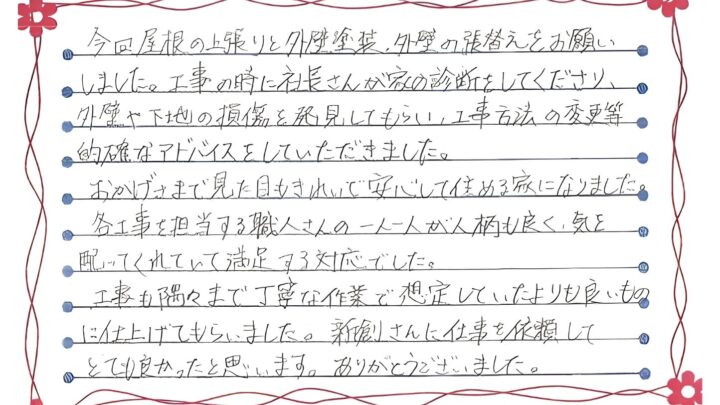 今回屋根の上張りと外壁塗装、外壁の張替えをお願い
しました。工事の時に社長さんが家の診断をしてくださり、
外壁や下地の損傷を発見してもらい、工事方法の変更等
的確なアドバイスをしていただきました。
おかげさまで見た目もきれいで安心して住める家になりました。
各工事を担当する職人さんの一人一人が人柄も良く、気を
配ってくれていて満足する対応でした。
工事も隅々まで丁寧な作業で想定していたよりも良いもの
に仕上げてもらいました。新創さんに仕事を依頼して
とても良かったと思います。ありがとうございました。